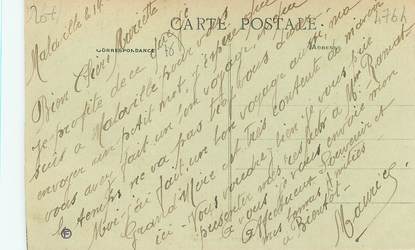 CARTE POSTALE
CORRESPONDANCE
ADRESSE
Malaville le 14
Bien Chère
Je profite de ce que je
suis à Malaville pour vous
envoyer un petit mot, j'espère que
vous avez fait un bon voyage, si
le temps ne va pas trop bous
Moi j'ai fait un bon voyage aussi ma
Grand Mère est très contente de m'avoir
ici. Vous voudrez bien s'il vous plaît
présenter mes respects à Mme
à vous je vous envoie mon
affectueux Souvenir et
mes bonnes amitiés
à Bientôt
Maurice